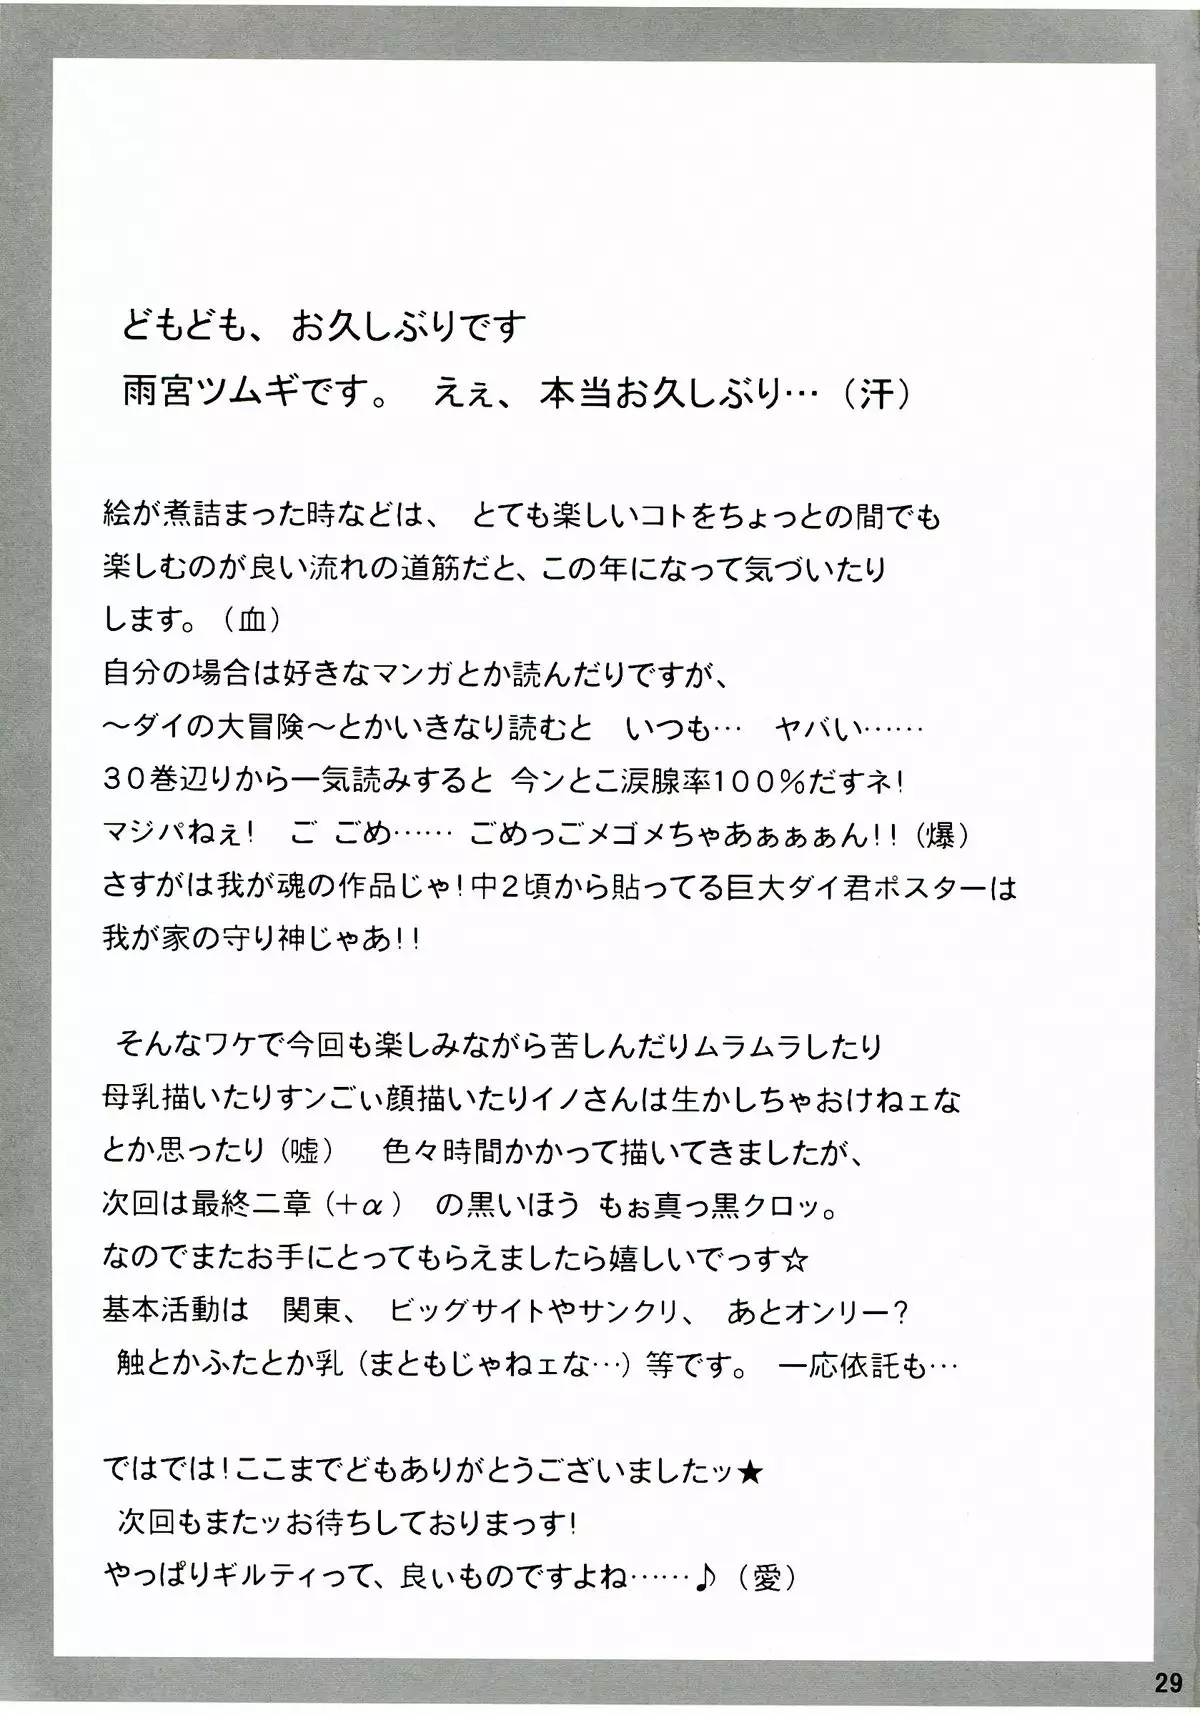 どもども、お久しぶりです
雨宮ツムギです。 えぇ、本当お久しぶり…（汗）
絵が煮詰まった時などは、 とても楽しいコトをちょっとの間でも
楽しむのが良い流れの道筋だと、この年になって気づいたり
します。（血）
自分の場合は好きなマンガとか読んだりですが、
～ダイの大冒険～とかいきなり読むと いつも… ヤバい……
３０巻辺りから一気読みすると 今ンとこ涙腺率１００％だすネ！
マジパねぇ！ ご ごめ…… ごめっごメゴメちゃあぁぁぁん！！（爆）
さすがは我が魂の作品じゃ！中２頃から貼ってる巨大ダイ君ポスターは
我が家の守り神じゃあ！！
そんなワケで今回も楽しみながら苦しんだりムラムラしたり
母乳描いたりすンごぃ顔描いたりイノさんは生かしちゃおけねェな
とか思ったり（嘘） 色々時間かかって描いてきましたが、
次回は最終二章（＋α） の黒いほう もぉ真っ黒クロッ。
なのでまたお手にとってもらえましたら嬉しいでっす☆
基本活動は 関東、 ビッグサイトやサンクリ、 あとオンリー？
触とかふたとか乳（まともじゃねェな…）等です。 一応依託も…
ではでは！ここまでどもありがとうございましたッ★
次回もまたッお待ちしておりまっす！
やっぱりギルティって、良いものですよね……♪（愛）
29